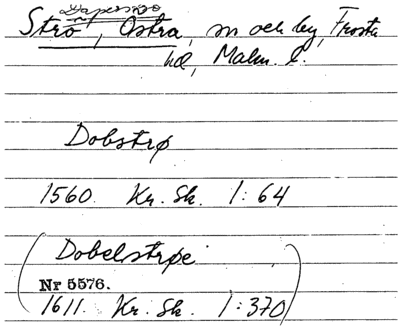 Strö, Östra, sn och by, Frosta
hd, Malm. l.
Dobstrø
1560. Kr. Sk. 1:64
(Dobelstrøe
Nr 5576.
1611. Kr. Sk. 1:370)